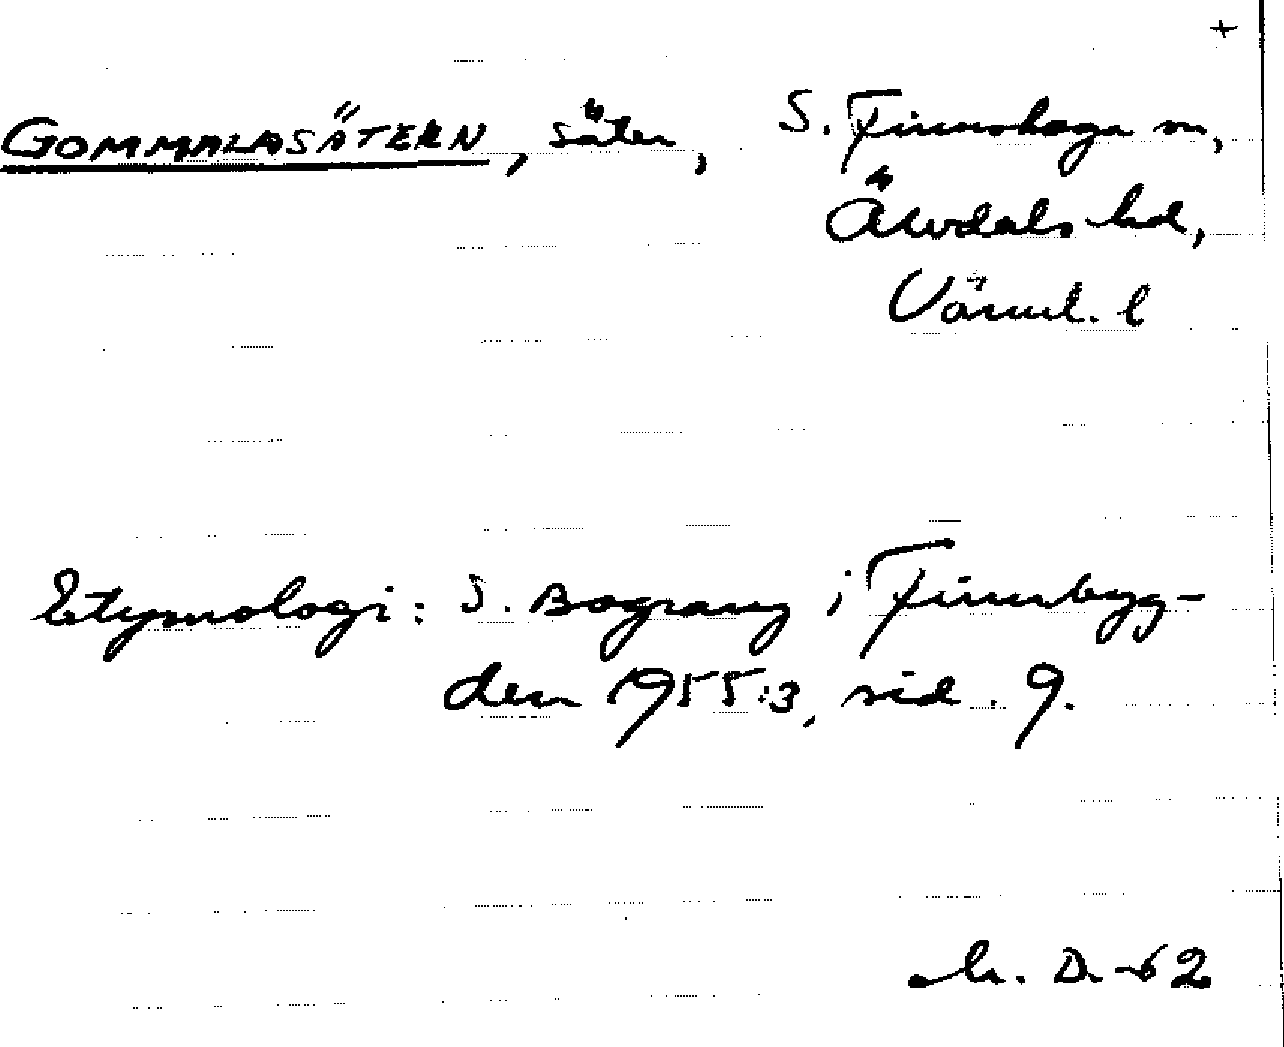 +
GOMMALASÄTERN, säter, S. Finnskoga sn,
Älvdals hd,
Värml. l
Etymologi: S. Bograng i Finnbyg-
den 1955:3, sid. 9.
D. -62